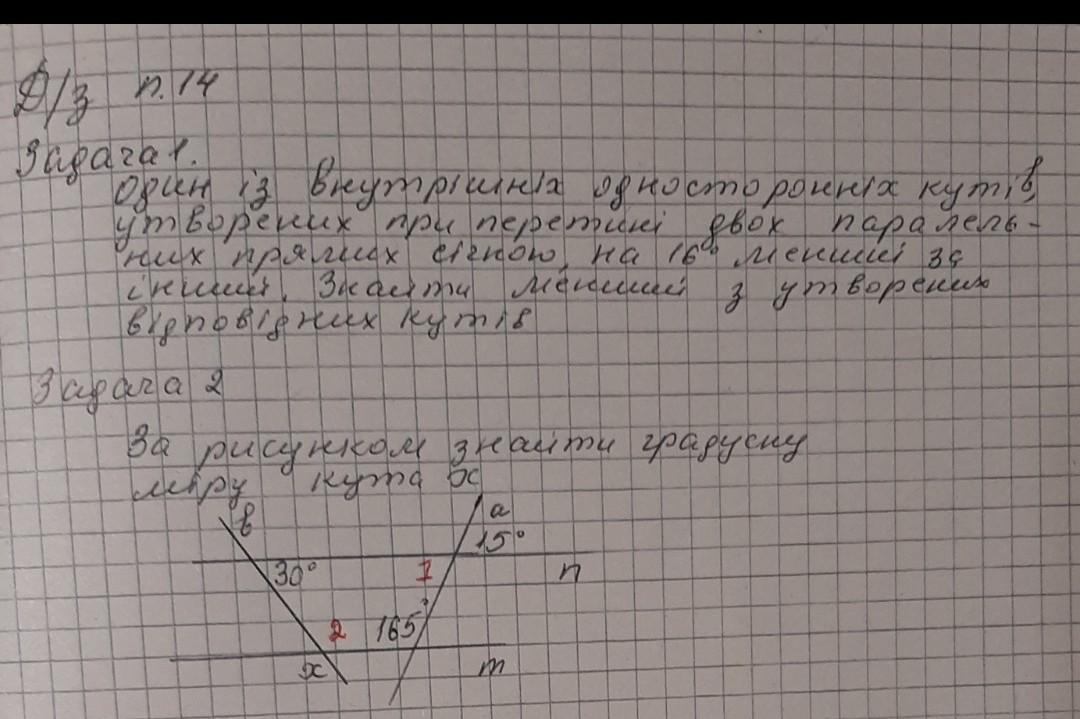 Д/з п.14
Задача 1.
Один із внутрішніх односторонніх кутів,
утворених при перетині двох паралель-
них прямих січною, на 16° менший за
інший. Знайти менший з утворених
відповідних кутів
Задача 2
За рисунком знайти градусну
міру кута x
в a
15°
30° 1 n
2 165°
x m